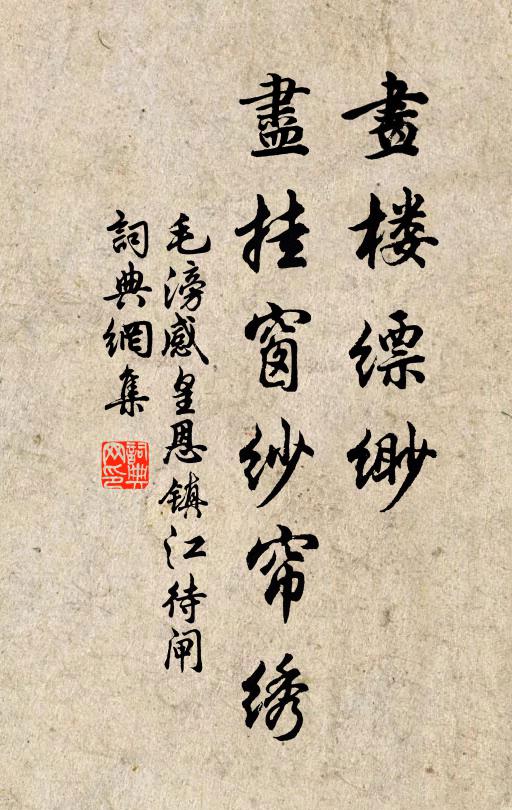 畫楼缥缈
盡挂窗纱帘绣
毛滂感皇恩镇江待闸
詞典網集
詞典網印